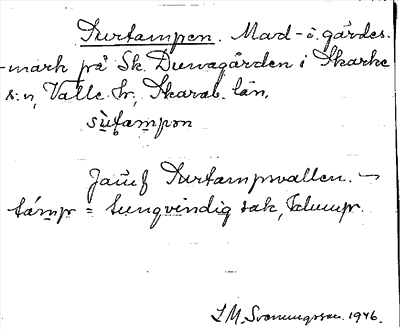 Surtampen. Mad- o. gärdes-
-mark på Sk. Duvagården i Skarke
s:n, Valle hr, Skarab. län.
sùtampɔn
Jämf Surtampvallen. —
támp = tungvindig sak, klump.
S. M. Svenungsson. 1946.